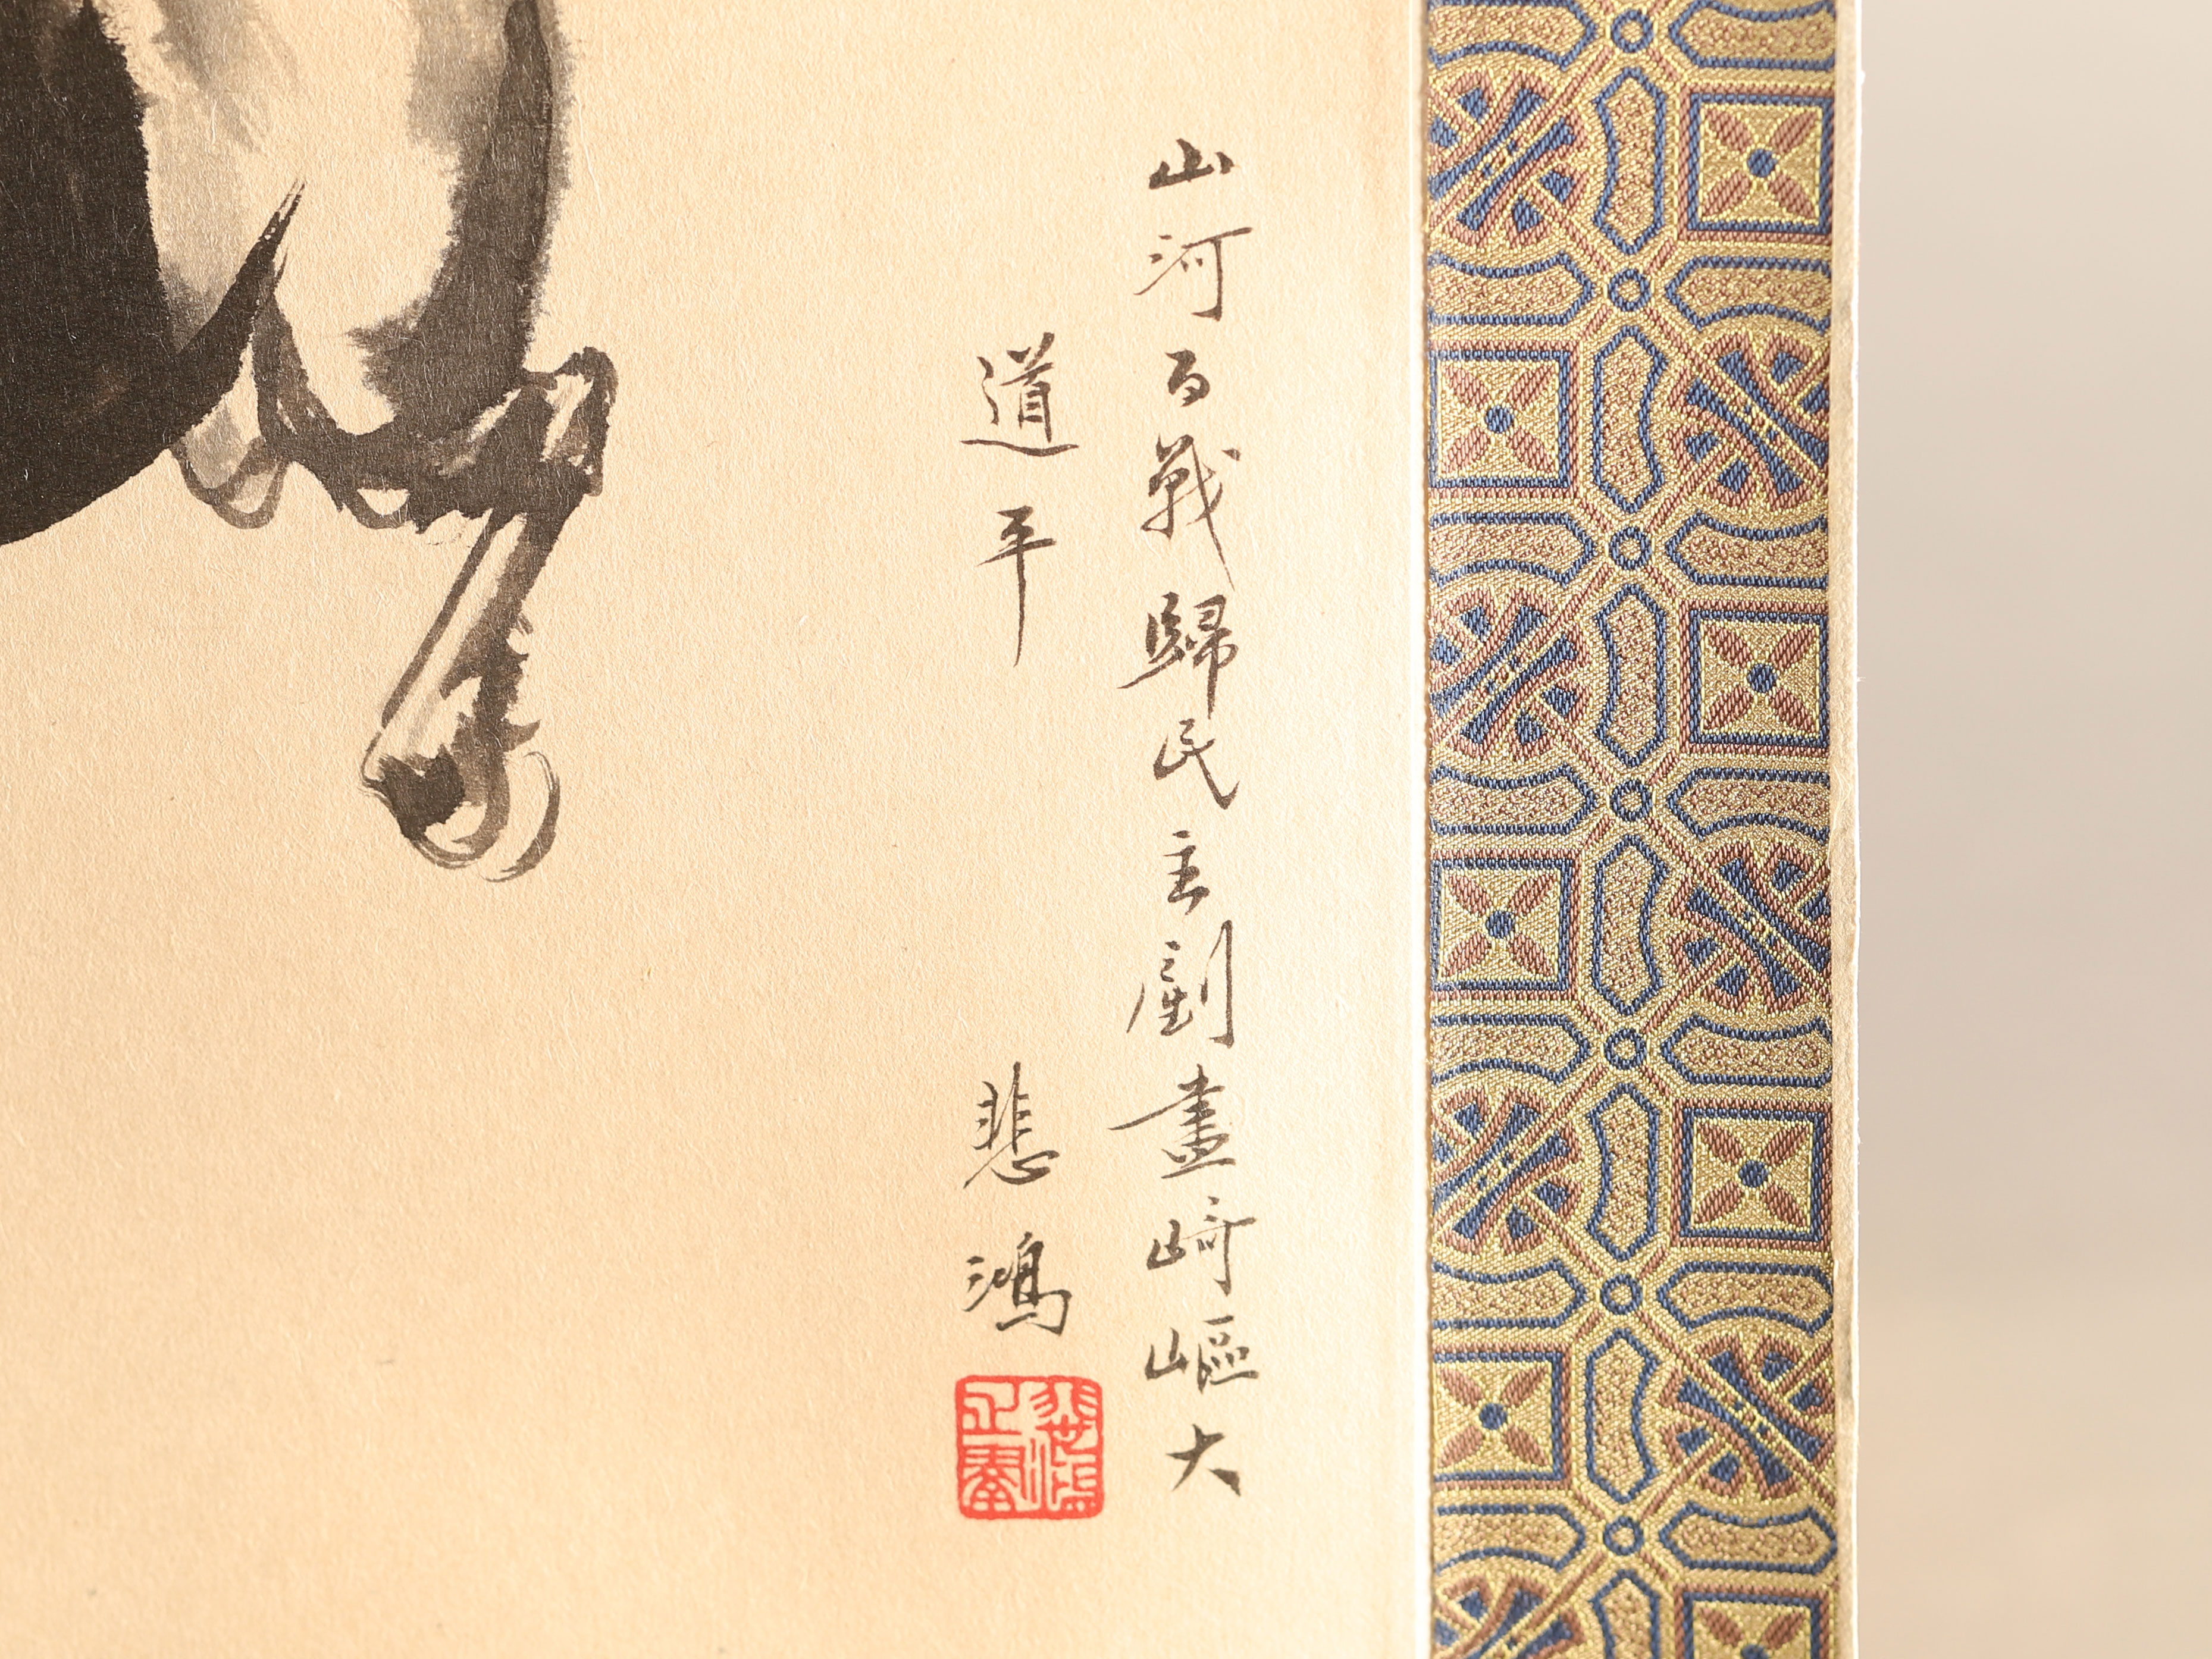 山河百戰歸民主剷盡崎嶇大
道平
悲鴻